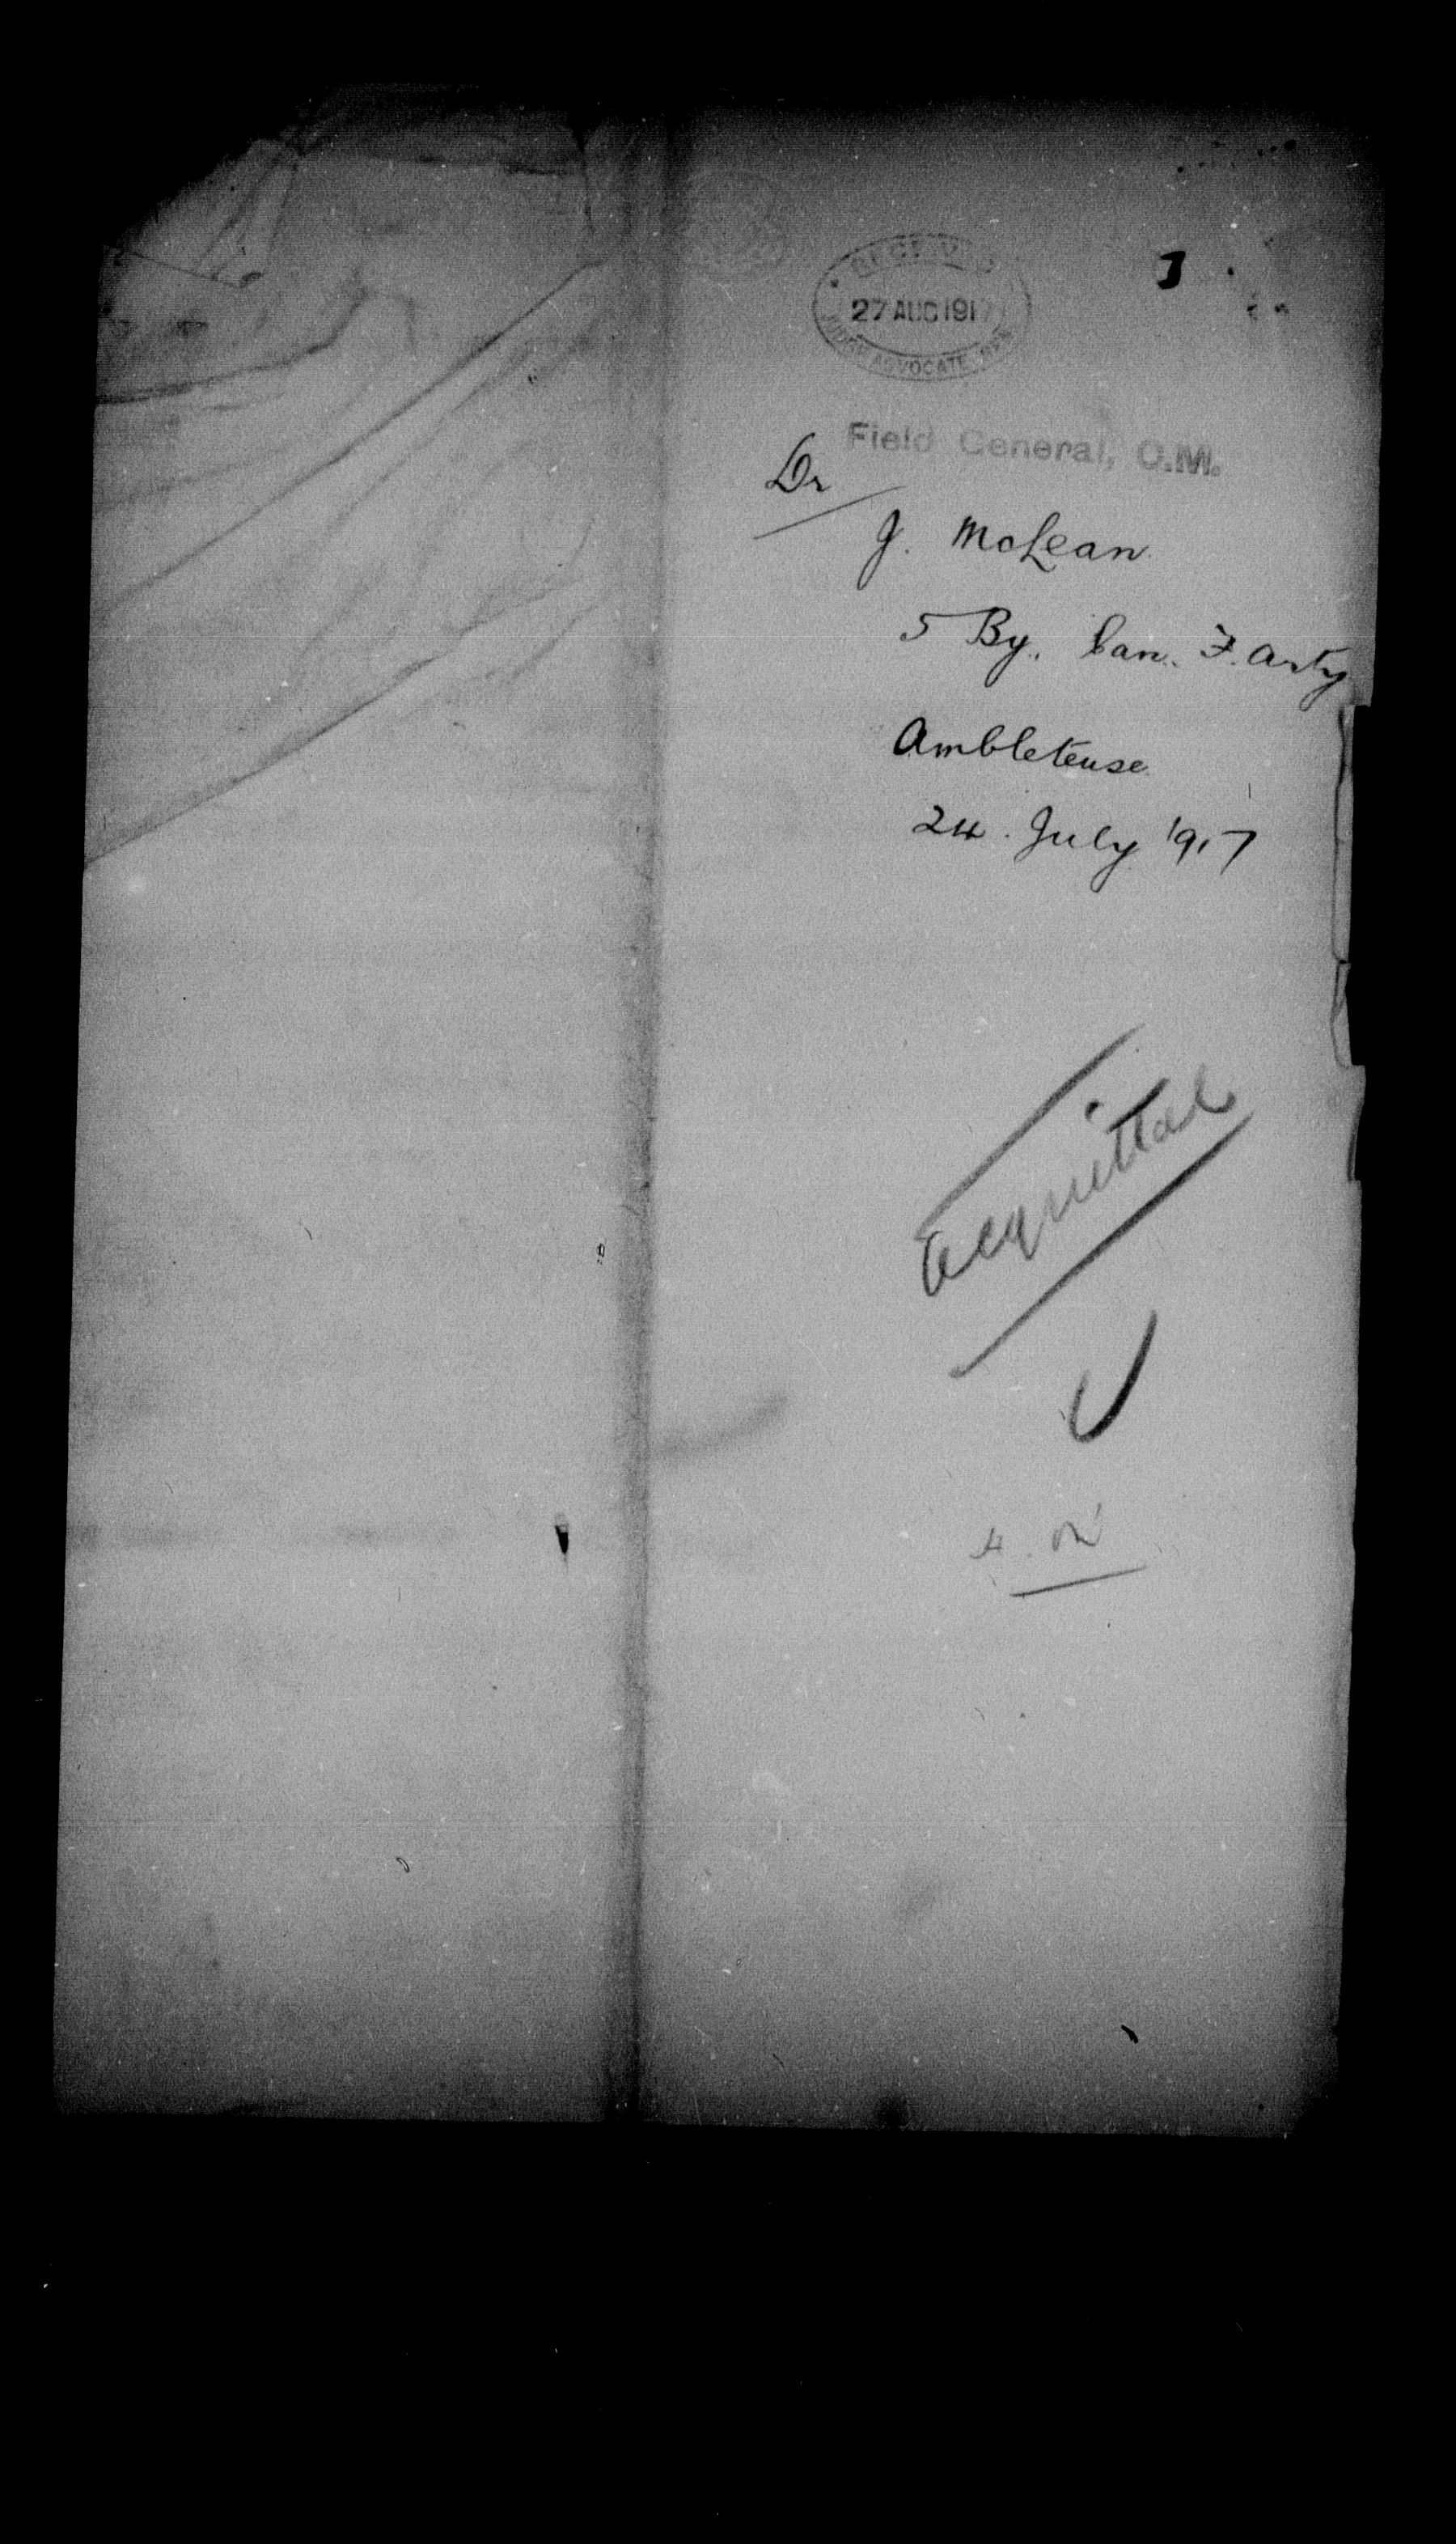 RECEIVED
27 AUG 1917
JUDGE ADVOCATE GEN
Field General, C.M.
Dr
J. McLean
5 By. Can. F. Arty
Ambleteuse
24. July 1917
Acquittal